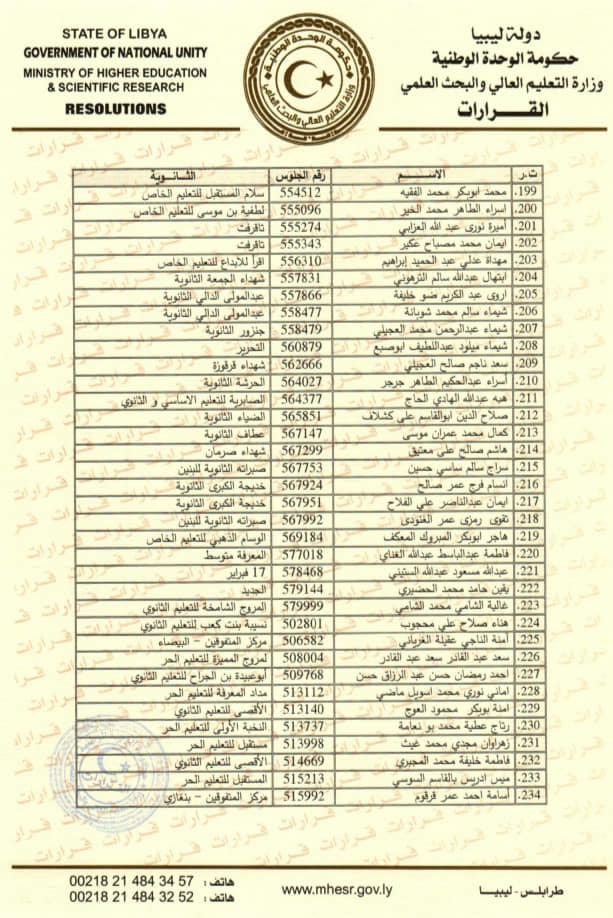 STATE OF LIBYA
GOVERNMENT OF NATIONAL UNITY
MINISTRY OF HIGHER EDUCATION
& SCIENTIFIC RESEARCH
RESOLUTIONS
دولة ليبيا
حكومة الوحدة الوطنية
وزارة التعليم العالي والبحث العلمي
القـــرارات
حكومة الوحدة الوطنية
وزارة التعليم العالي والبحث العلمي
ت.ر الاســـم رقم الجلوس الثـانـويـة
199. محمد ابوبكر محمد الفقيه 554512 سلام المستقبل للتعليم الخاص
200. اسراء الطاهر محمد الخير 555096 لطفية بن موسى للتعليم الخاص
201. أميرة نورى عبد الله العزابي 555274 تاقرفت
202. ايمان محمد مصباح عكير 555343 تاقرفت
203. مهداة عدلي عبد الحميد إبراهيم 556310 اقرأ للأبداع للتعليم الخاص
204. ابتهال عبدالله سالم الترهوني 557831 شهداء الجمعة الثانوية
205. اروى عبد الكريم ضو خليفة 557866 عبدالمولى الدالي الثانوية
206. شيماء سالم محمد شوبانة 558477 عبدالمولى الدالي الثانوية
207. شيماء عبدالرحمن محمد العجيلي 558479 جنزور الثانوية
208. شيماء ميلود عبداللطيف ابوصبع 560879 التحرير
209. سعد ناجم صالح العجيلي 562666 شهداء قرقوزة
210. أسراء عبدالحكيم الطاهر جرجر 564027 الحرشة الثانوية
211. هبه عبدالله الهادي الحاج 564377 الصابرية للتعليم الاساسي و الثانوي
212. صلاح الدين ابوالقاسم على كشلاف 565851 الضياء الثانوية
213. كمال محمد عمران موسى 567147 عطاف الثانوية
214. هاشم صالح على معتيق 567299 شهداء صرمان
215. سراج سالم ساسي حسين 567753 صبراته الثانوية للبنين
216. انسام فرج عمر صالح 567924 خديجة الكبرى الثانوية
217. ايمان عبدالناصر علي الفلاح 567951 خديجة الكبرى الثانوية
218. تقوى رمزى عمر الغنودى 567992 صبراته الثانوية للبنين
219. هاجر ابوبكر المبروك المعكف 569184 الوسام الذهبي للتعليم الخاص
220. فاطمة عبدالباسط عبدالله الغناي 577018 المعرفة متوسط
221. عبدالله مسعود عبدالله الستيني 578468 17 فبراير
222. يقين حامد محمد الحضيري 579144 الجديد
223. غالية الشامي محمد الشامي 579999 المروج الشامخة للتعليم الثانوي
224. هناء صلاح علي محجوب 502801 نسيبة بنت كعب للتعليم الثانوي
225. آمنة الناجي عقيلة الغرياني 506582 مركز المتفوقين – البيضاء
226. سعد عبد القادر سعد عبد القادر 508004 لمروج المميزة للتعليم الحر
227. احمد رمضان حسن عبد الرزاق حسن 509768 أبوعبيدة بن الجراح للتعليم الثانوي
228. اماني نوري محمد اسويل ماضي 513112 مداد المعرفة للتعليم الحر
229. امنة بوبكر محمود العوج 513140 الأقصى للتعليم الثانوي
230. رتاج عطية محمد بو نعامة 513737 النخبة الأولى للتعليم الحر
231. زهراوان مجدي محمد غيث 513998 مستقبل للتعليم الحر
232. فاطمة خليفة محمد المجبري 514669 الأقصى للتعليم الثانوي
233. ميس ادريس بالقاسم السوسي 515213 المستقبل للتعليم الحر
234. أسامة احمد عمر قرقوم 515992 مركز المتفوقين – بنغازي
هاتف : 00218 21 484 34 57
هاتف : 00218 21 484 32 52
www.mhesr.gov.ly
طرابلس - ليبيـــا